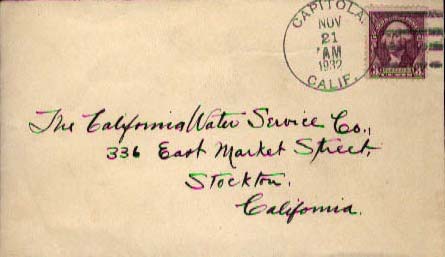 CAPITOLA,
NOV
21
AM
1932
CALIF.
The California Water Service Co.,
336 East Market Street,
Stockton.
California.